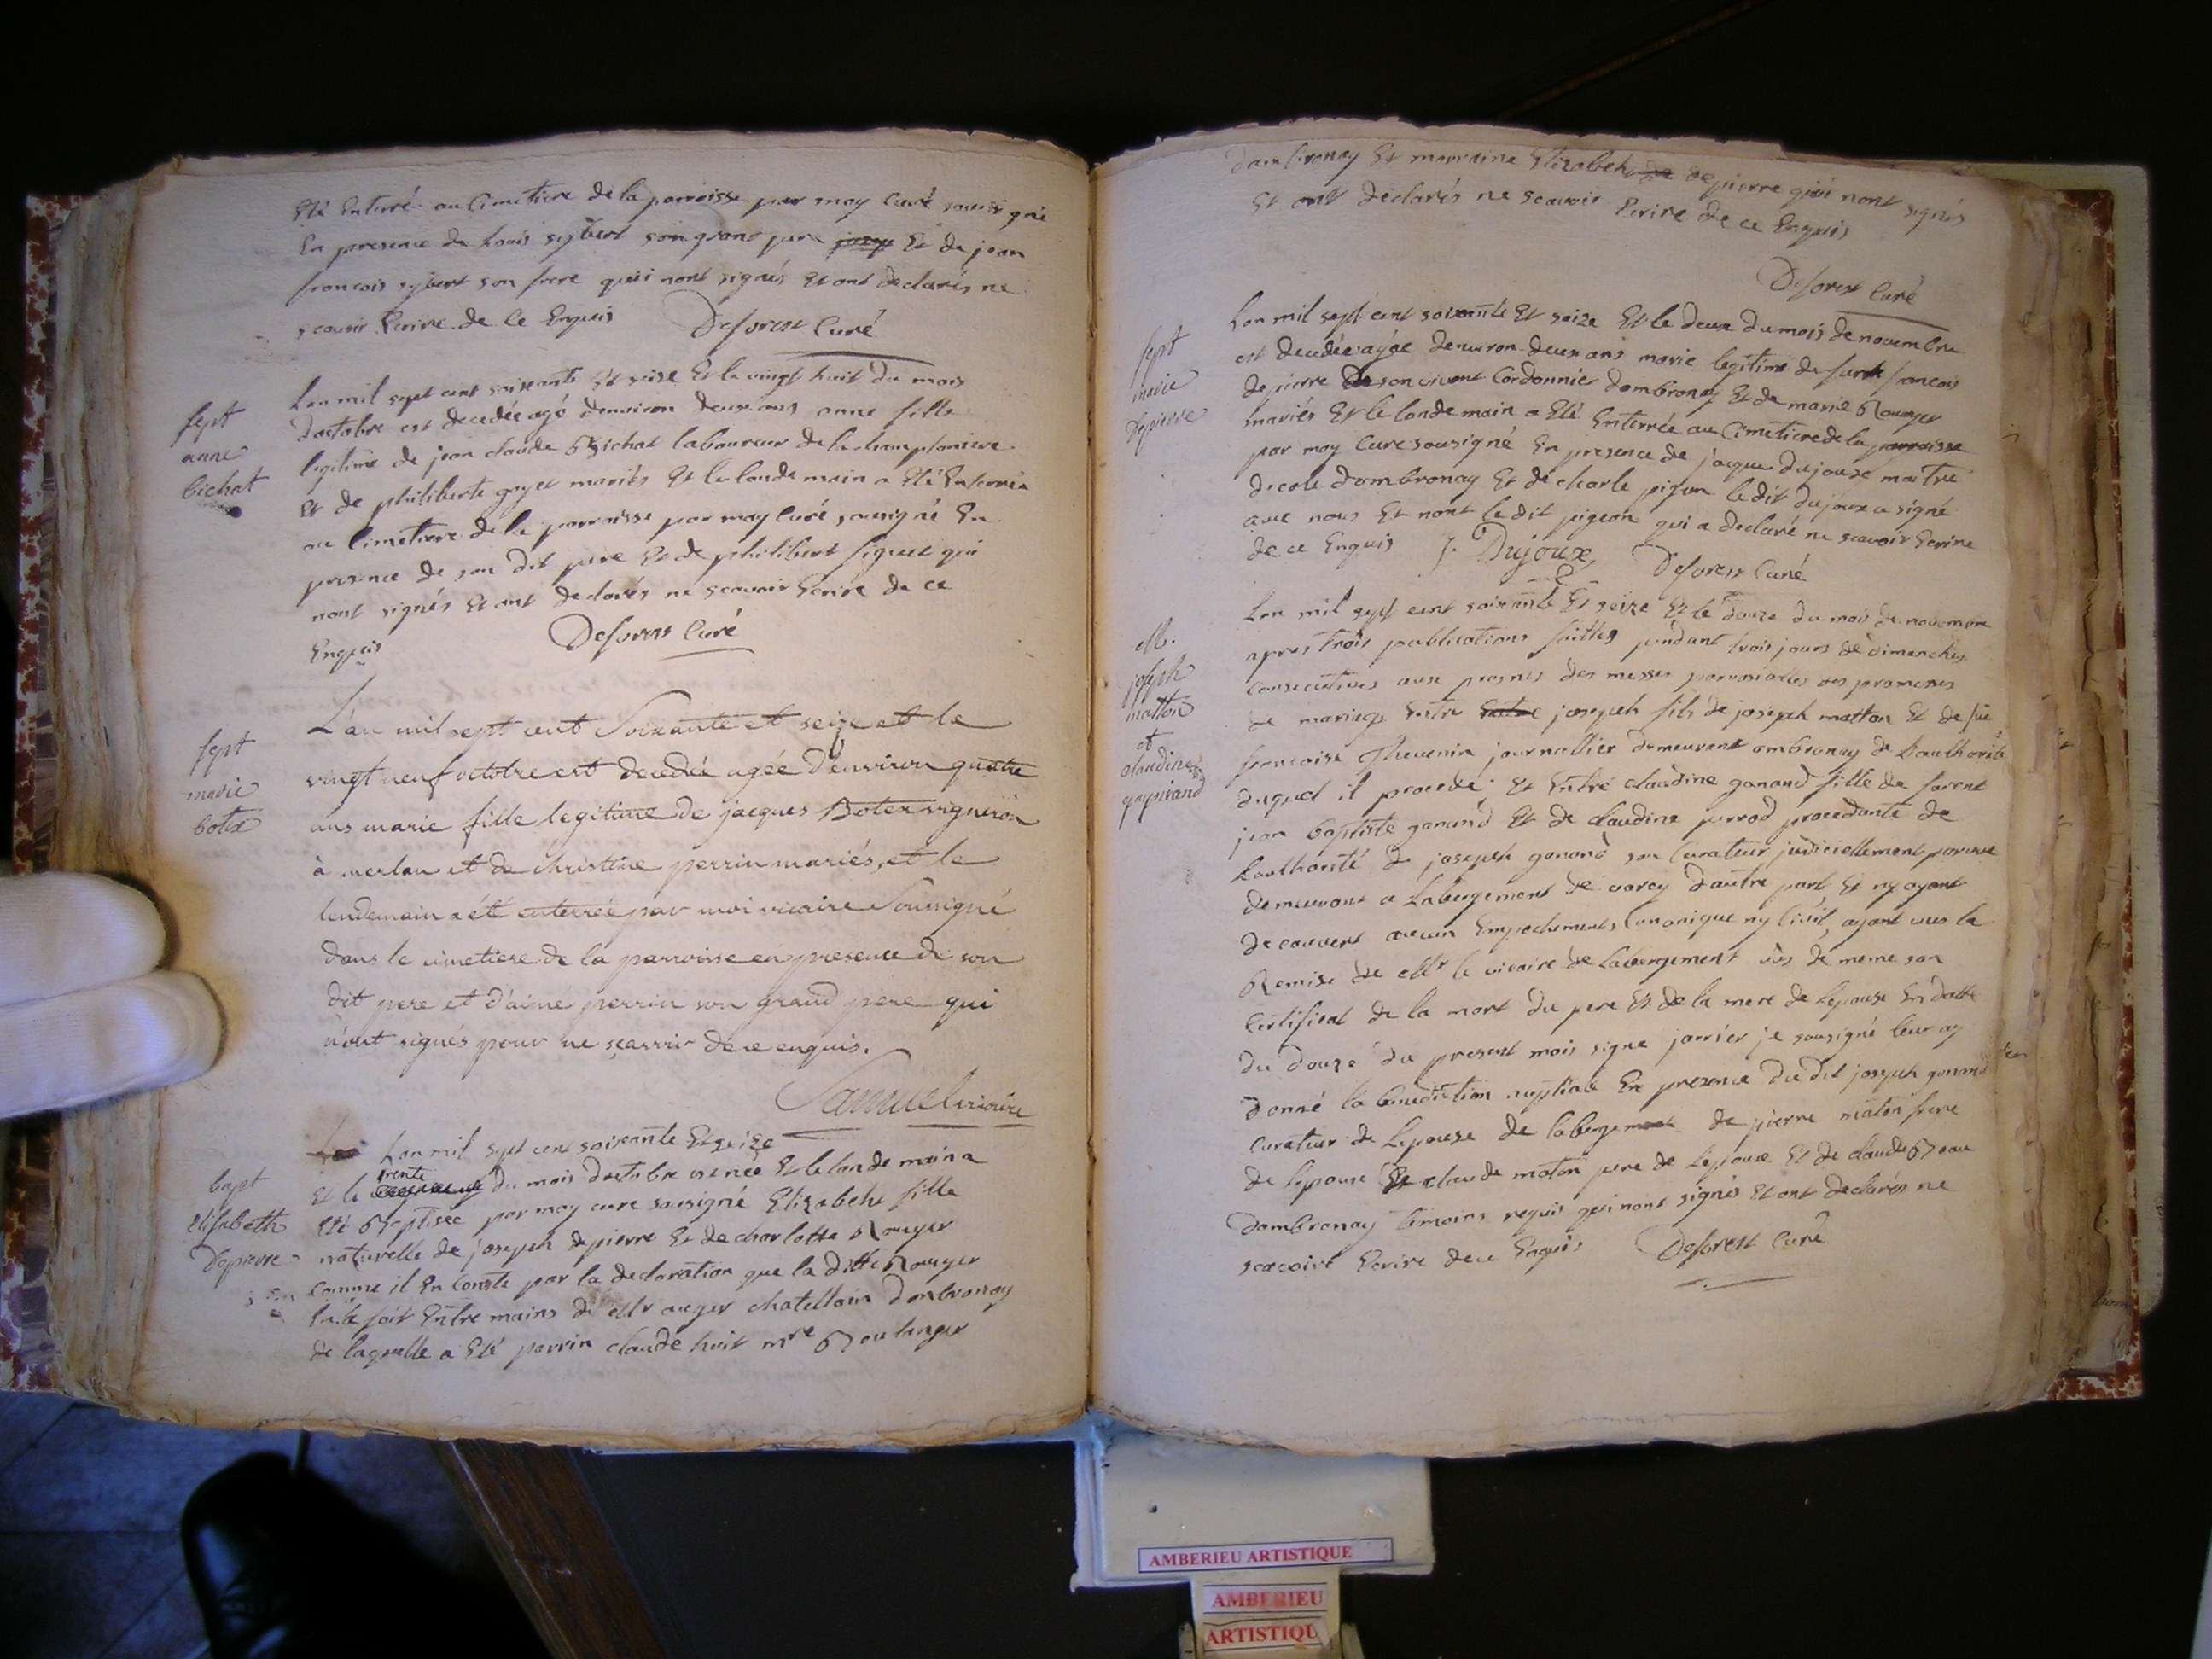 Eté Enterré au Cimetiere de la parroisse par moy Curé sousigné
En presence de Louis sybert son grant pere Et de jean
francois sybert son frere quii nont signés Et ont declarés ne
scavoir Ecrire de Ce Enquis Deforest Curé
sept
anne
bichat
Lan mil sept cent soixante Et seise Et le vingt huit du mois
doctobre est decedée agé denviron deux ans anne fille
legitime de jean claude Bichat laboureur de
Et de philiberte goyet mariés Et le lande main a Eté Enterrée
au Cimetiere de la parroisse par moy Curé sousigné En
presence de son dit pere Et de philibert qui
nont signés Et ont declarés ne scavoir Ecrire de ce
Enquis Deforest Curé
sept
marie
botex
L'an mil sept cent Soixante et seize et le
vingt neuf octobre est decedée agée d'environ quatre
ans marie fille legitime de jacques Botex vigneron
à merlan et de christine perrin mariés, et le
lendemain a été enterrée par moi vicaire Soussigné
dans le cimetiere de la parroisse en presence de son
dit pere et d'aimé perrin son grand pere qui
n'ont signés pour ne sçavoir de ce enquis.
Samuel vicaire
bapt
elisabeth
Depierre
Lan mil sept cent soixante Et seize
Et le trente du mois doctobre est née Et le lande main a
Eté Baptisée par moy curé sousigné Elizabeht fille
naturelle de joseph depierre Et de charlotte Rouyer
comme il En Conste par la declaration que la ditte Rouyer
En a fait Entre mains de Mr auger chatellain dambronay
de laquelle a Eté parrin claude huit mre Boulanger
dambronay Et marraine Elizabeht de depierre quii nont signés
Et ont declarés ne scavoir Ecrire de ce Enquis
Deforest Curé
sept
marie
Depierre
Lan mil sept cent soixante Et seize Et le deux du mois de novembre
est decedée agée denviron deux ans marie legitime de francois
depierre de son vivant Cordonnie dambronay Et de marie Rouyer
mariés Et le lande main a Eté Enterrée au Cimetiere de la parroisse
par moy Curé sousigné En presence de jacque dujoux maitre
decole dambronay Et de charle pigeon le dit dujoux a signé
avec nous Et nont le dit pigeon qui a declaré ne scavoir Ecrire
de ce Enquis J. Dujoux Deforest Curé
M.
joseph
matton
et
claudine
Lan mil sept cent soixante Et seize Et le douze du mois de novembre
apres trois publications faittes pendant trois jours de dimanches
consecutives aux prosnes des messes parrosialles des promesses
de mariage Entre joseph fils de joseph matton Et de
francoise Thevenin journallier demeurant ambronay de Lauthorité
duquel il procede Et Entre claudine gonand fille de
jean baptiste gonand Et de claudine perrod procedante de
Lauthorité de joseph gonand son Curateur judiciellement
demeurant a Labergement de varey dautre part Et ny ayant
decouvert aucun Empechements Canonique ny Civil, ayant vus la
Remise de Mr le vicaire de Labergement vûs de meme son
Certificat de la mort du pere Et de la mere de Lepouse En datte
du douze du present mois signe janvier je sousigné leur ay
donné la benediction nuptiale En presence du dit joseph gonand
curateur de Lepouse de labergement de pierre maton frere
de Lepoux Et claude maton pere de Lepoux Et de claude Beau
dambronay temoins requis quii nont signés Et ont declarés ne
scavoire Ecrire de ce Enquis Deforest Curé
AMBERIEU ARTISTIQUE
AMBERIEU
ARTISTIQU